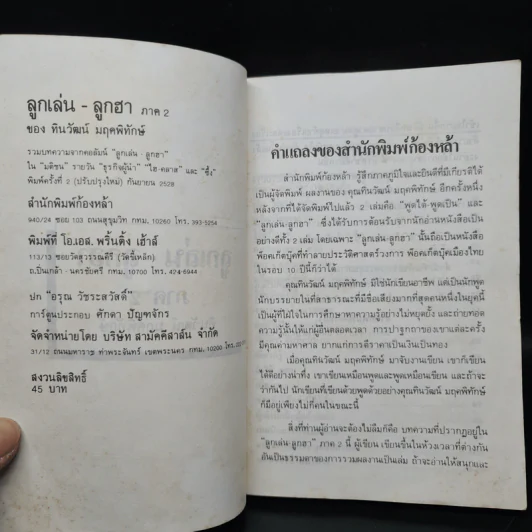 ลูกเล่น - ลูกฮา ภาค 2
ของ ทินวัฒน์ มฤคพิทักษ์
รวมบทความจากคอลัมน์ "ลูกเล่น - ลูกฮา"
ใน "มติชน" รายวัน "ธุรกิจผู้นำ" "ไฮ-คลาส" และ "ซึ้ง"
พิมพ์ครั้งที่ 2 (ปรับปรุงใหม่) กันยายน 2528
สำนักพิมพ์ก้องหล้า
940/24 ซอย 103 ถนนสุขุมวิท กทม. 10260 โทร. 393-5254
พิมพ์ที่ โอ.เอส. พริ้นติ้ง เฮ้าส์
113/13 ซอยวัดสุวรรณคีรี (วัดขี้เหล็ก)
ถ.ปิ่นเกล้า - นครชัยศรี กทม. 10700 โทร. 424-6944
ปก "อรุณ วัชระสวัสดิ์"
การ์ตูนประกอบ ศักดา ปัญฑจักร
จัดจำหน่ายโดย บริษัท สามัคคีสาส์น จำกัด
31/12 ถนนมหาราช ท่าพระจันทร์ เขตพระนคร กทม. 10200
สงวนลิขสิทธิ์
45 บาท
คำแถลงของสำนักพิมพ์ก้องหล้า
สำนักพิมพ์ก้องหล้า รู้สึกภาคภูมิใจและยินดีที่มีเกียรติได้
เป็นผู้จัดพิมพ์ ผลงานของ คุณทินวัฒน์ มฤคพิทักษ์ อีกครั้งหนึ่ง
หลังจากที่ได้จัดพิมพ์ไปแล้ว 2 เล่มคือ "พูดได้-พูดเป็น" และ
"ลูกเล่น-ลูกฮา" ซึ่งได้รับการต้อนรับจากนักอ่านหนังสือเป็น
อย่างดีทั้ง 2 เล่ม โดยเฉพาะ "ลูกเล่น-ลูกฮา" นั้นถือเป็นหนังสือ
พ็อคเก็ตบุ๊คที่ทำลายประวัติศาสตร์วงการ พ็อคเก็ตบุ๊คเมืองไทย
ในรอบ 10 ปีนี้ก็ว่าได้
คุณทินวัฒน์ มฤคพิทักษ์ มิใช่นักเขียนอาชีพ แต่เป็นนักพูด
นักบรรยายในที่สาธารณะที่มีชื่อเสียงมากที่สุดคนหนึ่งในยุคนี้
เป็นผู้ที่ใฝ่ใจในการศึกษาหาความรู้อย่างไม่หยุดยั้ง และถ่ายทอด
ความรู้นั้นให้แก่ผู้อื่นตลอดเวลา การปาฐกถาของเขาแต่ละครั้ง
มีคุณค่ามหาศาล ยากแก่การตีราคาเป็นเงินเป็นทอง
เมื่อคุณทินวัฒน์ มฤคพิทักษ์ มาจับงานเขียน เขาก็เขียน
ได้ดีอย่างน่าทึ่ง เขาเขียนเหมือนพูดและพูดเหมือนเขียน และถ้าจะ
ว่ากันไป นักเขียนที่เขียนด้วยพูดด้วยอย่างคุณทินวัฒน์ มฤคพิทักษ์
ก็มีอยู่เพียงไม่กี่คนในขณะนี้
สิ่งที่ท่านผู้อ่านจะต้องไม่ลืมก็คือ บทความที่ปรากฏอยู่ใน
"ลูกเล่น-ลูกฮา" ภาค 2 นี้ ผู้เขียน เขียนขึ้นในห้วงเวลาที่ต่างกัน
อันเป็นธรรมดาของการรวมผลงานเป็นเล่ม ถ้าจะอ่านให้สนุกและ